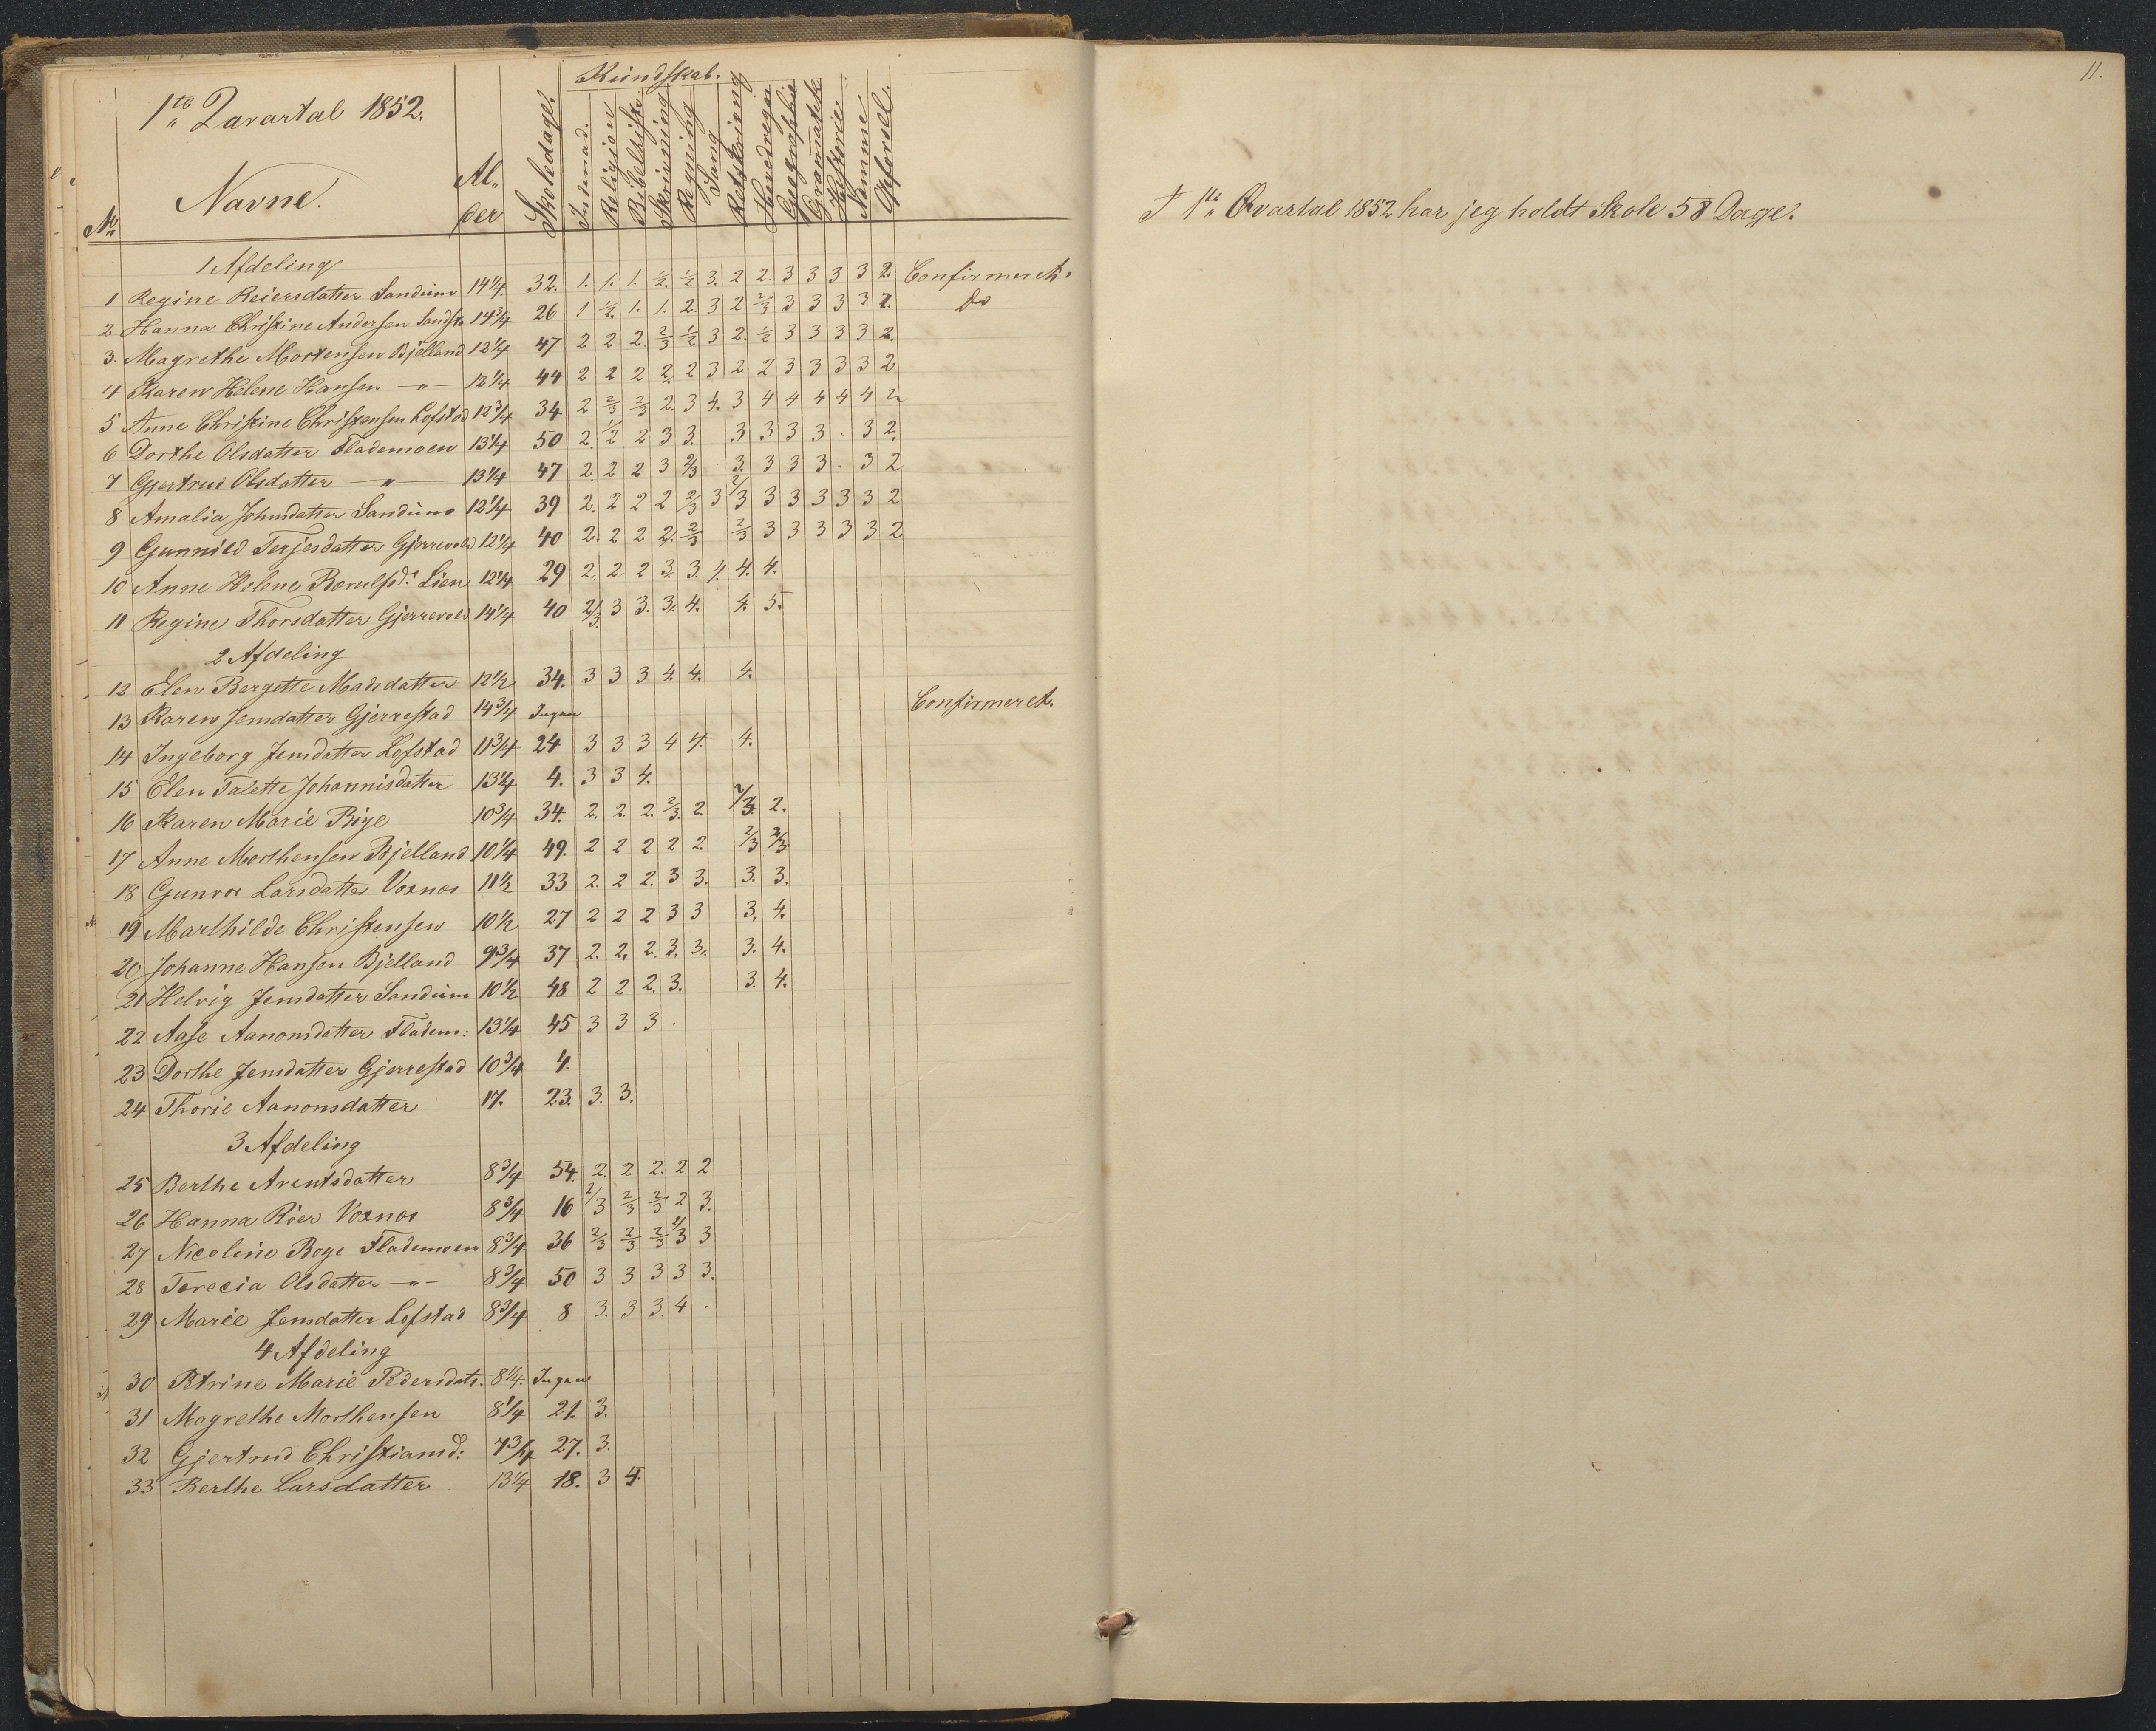 1te Qvartal 1852.
Kundskab.
No Navne. Alder Skoledage. Indenad. Religion Bibelhist. Skrivning Regning Sang Retskrivning Hovedregn Geographie Gramatik Historie Nemme Opførsel.
1 Afdeling
1 Regine Reiersdatter Sandum 14 1/4 32. 1. 1. 1. 1/2. 1/2 3. 2 2. 3 3 3 3 2. Confirmeret.
2 Hanna Christine Andersen 14 3/4 26 1 1/2. 1. 1. 2. 3 2 2/3 3 3 3 3 2. Do
3. Magrethe Mortensen Bjelland 12 1/4 47 2 2 2. 2/3 1/2 3 2. 1/2 3 3 3 3 2.
4 Karen Helene Hansen — " — 12 1/4 44 2 2 2 2. 2 3 2 2 3 3 3 3 2
5 Anne Christine Christensen Lofstad 12 3/4 34 2 2/3 2/3 2. 3 4. 3 4 4 4 4 4 2
6 Dorthe Olsdatter Flademoen 13 1/4 50 2. 1/2 2 3 3. 3 3 3 3 . 3 2.
7 Gjertrud Olsdatter — " — 13 1/4 47 2. 2 2 3 2/3 3. 3 3 3 . 3 2
8 Amalia Johnsdatter Sandum 12 1/4 39 2. 2 2 2 2/3 3 2/3 3 3 3 3 3 2
9 Gunnild Terjesdatter Gjerrevold 12 1/4 40 2. 2 2 2. 2/3 2/3 3 3 3 3 3 2
10 Anne Helene Lien 12 1/4 29 2. 2 2 3. 3. 4. 4. 4.
11 Regine Thorsdatter Gjerrevold 14 1/4 40 2/3. 3 3. 3. 4. 4. 5.
2 Afdeling
12 Elen Bergette Madsdatter 12 1/2 34. 3 3 3 4. 4. 4.
13 Karen Jensdatter Gjerrestad 14 3/4 Ingen Confirmeret.
14 Ingeborg Jensdatter Lofstad 11 3/4 24 3 3 3 4 4. 4.
15 Elen Talette Johannisdatter 13 1/4 4. 3 3 4.
16 Karen Marie Bøye 10 3/4 34. 2. 2. 2. 2/3. 2. 2/3. 2.
17 Anne Morthensen Bjelland 10 1/4 49. 2 2 2 2 2. 2/3 2/3
18 Gunvor Larsdatter Voxnes 11 1/2 33 2. 2 2. 3 3. 3. 3.
19 Marthilde Christensen 10 1/2 27 2 2 2 3 3 3. 4.
20 Johanne Hansen Bjelland 9 3/4 37 2. 2. 2. 3. 3. 3. 4.
21 Helvig Jensdatter Sandum 10 1/2 48 2 2 2. 3. 3. 4.
22 Aase Aanonsdatter Fladem: 13 1/4 45 3 3 3 .
23 Dorthe Jensdatter Gjerrestad 10 3/4 4.
24 Thorie Aanonsdatter 17. 23. 3. 3.
3 Afdeling
25 Berthe Arentsdatter 8 3/4 54. 2. 2 2. 2 2
26 Hanna Röer Voxnes 8 3/4 16 2/3 2/3 2/3 2 3.
27 Nicoline Boye Flademoen 8 3/4 36 2/3 2/3 2/3 2/3 3
28 Terecia Olsdatter — " — 8 3/4 50 3 3 3 3 3.
29 Marie Jensdatter Lofstad 8 3/4 8 3. 3 3. 4 .
4 Afdeling
30 Petrine Marie Pedersdatr. 8 1/4. Ingen
31 Magrethe Morthensen 8 1/4 21. 3.
32 Gjertrud Christiansd: 7 3/4 27. 3.
33 Berthe Larsdatter 13 1/4 18. 3 4.
11.
I 1te Qvartal 1852 har jeg holdt Skole 58 Dage.